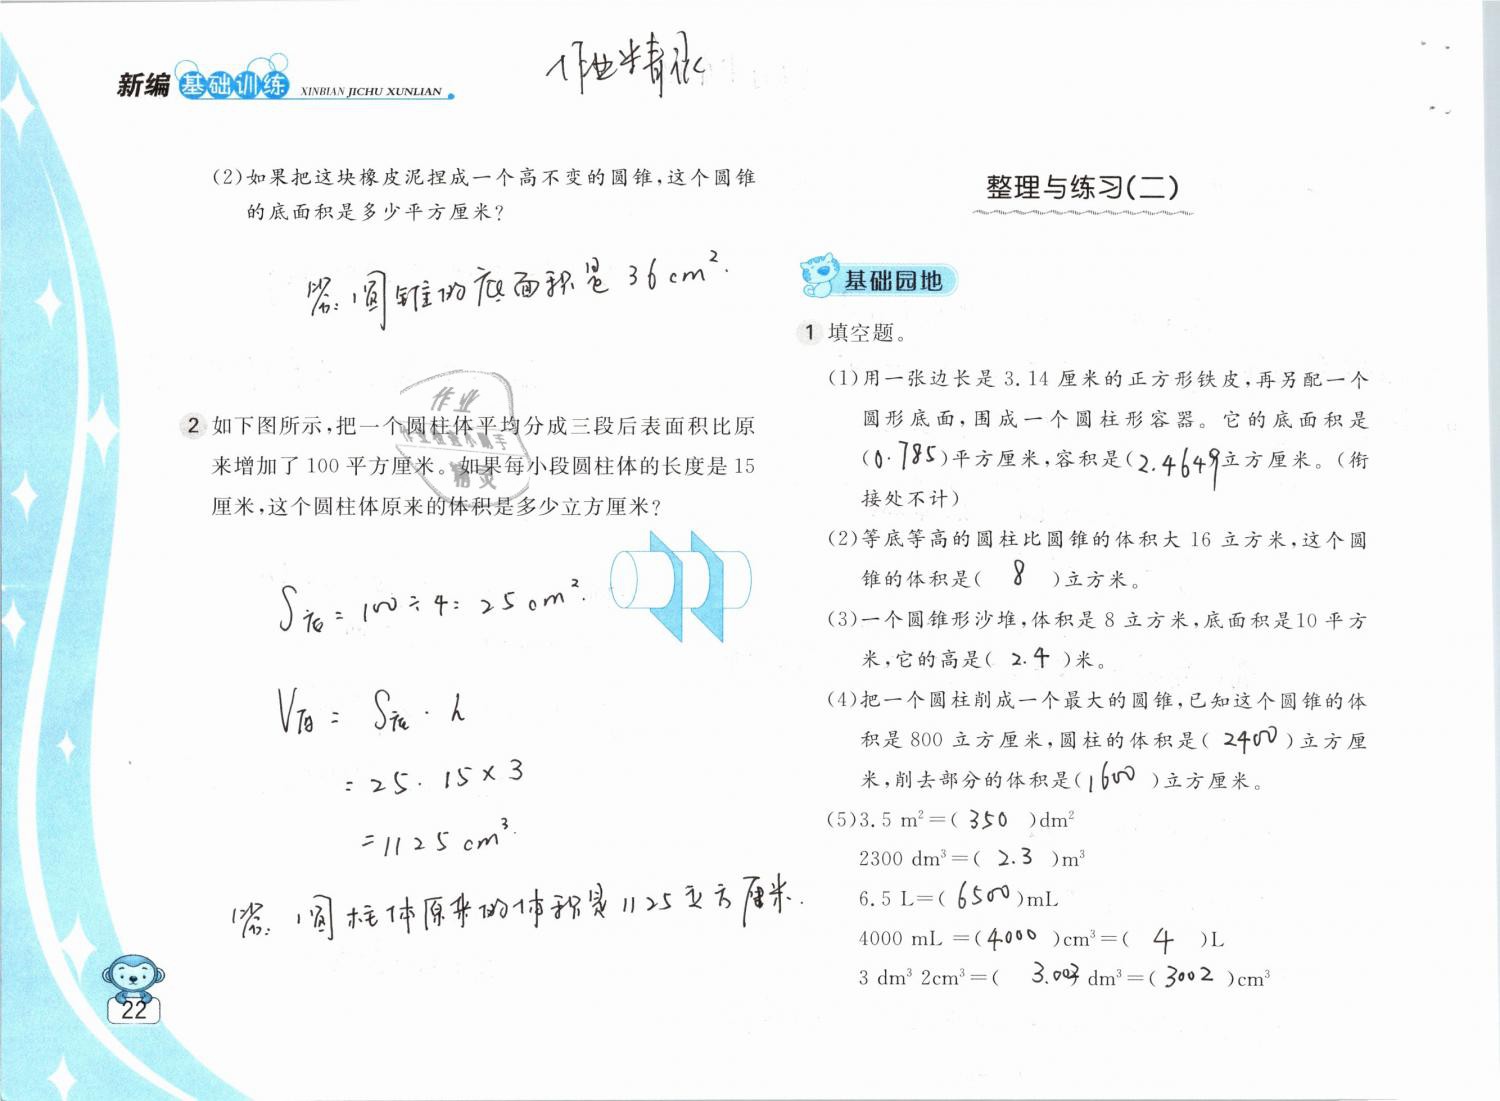 新编 基础训练 XINBIAN JICHU XUNLIAN
作业精灵
(2)如果把这块橡皮泥捏成一个高不变的圆锥,这个圆锥
的底面积是多少平方厘米?
答:圆锥的底面积是 36cm².
作业
精灵
2 如下图所示,把一个圆柱体平均分成三段后表面积比原
来增加了 100 平方厘米。如果每小段圆柱体的长度是 15
厘米,这个圆柱体原来的体积是多少立方厘米?
S底=100÷4=25cm².
= S底·h
=25·15×3
=1125cm³.
答:圆柱体原来的体积是1125立方厘米.
22
整理与练习(二)
基础园地
1 填空题。
(1)用一张边长是 3.14 厘米的正方形铁皮,再另配一个
圆形底面,围成一个圆柱形容器。它的底面积是
(0.785)平方厘米,容积是(2.4649立方厘米。(衔
接处不计)
(2)等底等高的圆柱比圆锥的体积大 16 立方米,这个圆
锥的体积是( 8 )立方米。
(3)一个圆锥形沙堆,体积是 8 立方米,底面积是10 平方
米,它的高是( 2.4 )米。
(4)把一个圆柱削成一个最大的圆锥,已知这个圆锥的体
积是 800 立方厘米,圆柱的体积是( 2400 )立方厘
米,削去部分的体积是(1600 )立方厘米。
(5)3.5 m²=( 350 )dm²
2300 dm³=( 2.3 )m³
6.5 L=( 6500 )mL
4000 mL =(4000 )cm³=( 4 )L
3 dm³ 2cm³=( 3.002 dm³=( 3002 )cm³